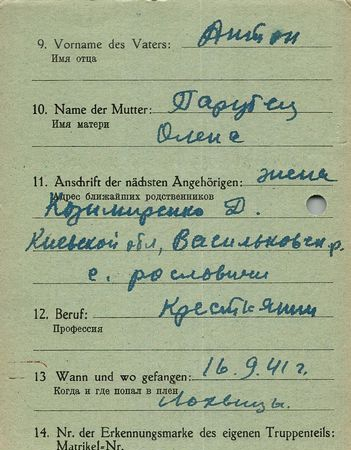 9. Vorname des Vaters: Антон
Имя отца
10. Name der Mutter: Парубец
Имя матери
Олена
11. Anschrift der nächsten Angehörigen: жена
Адрес ближайших родственников
Козимиренко Д.
Киевской обл, Васильковск. р.
с. рославичи
12. Beruf: Крестьянин
Профессия
13 Wann und wo gefangen: 16.9.41 г.
Когда и где попал в плен
Лохвицы.
14. Nr. der Erkennungsmarke des eigenen Truppenteils:
Matrikel-Nr.